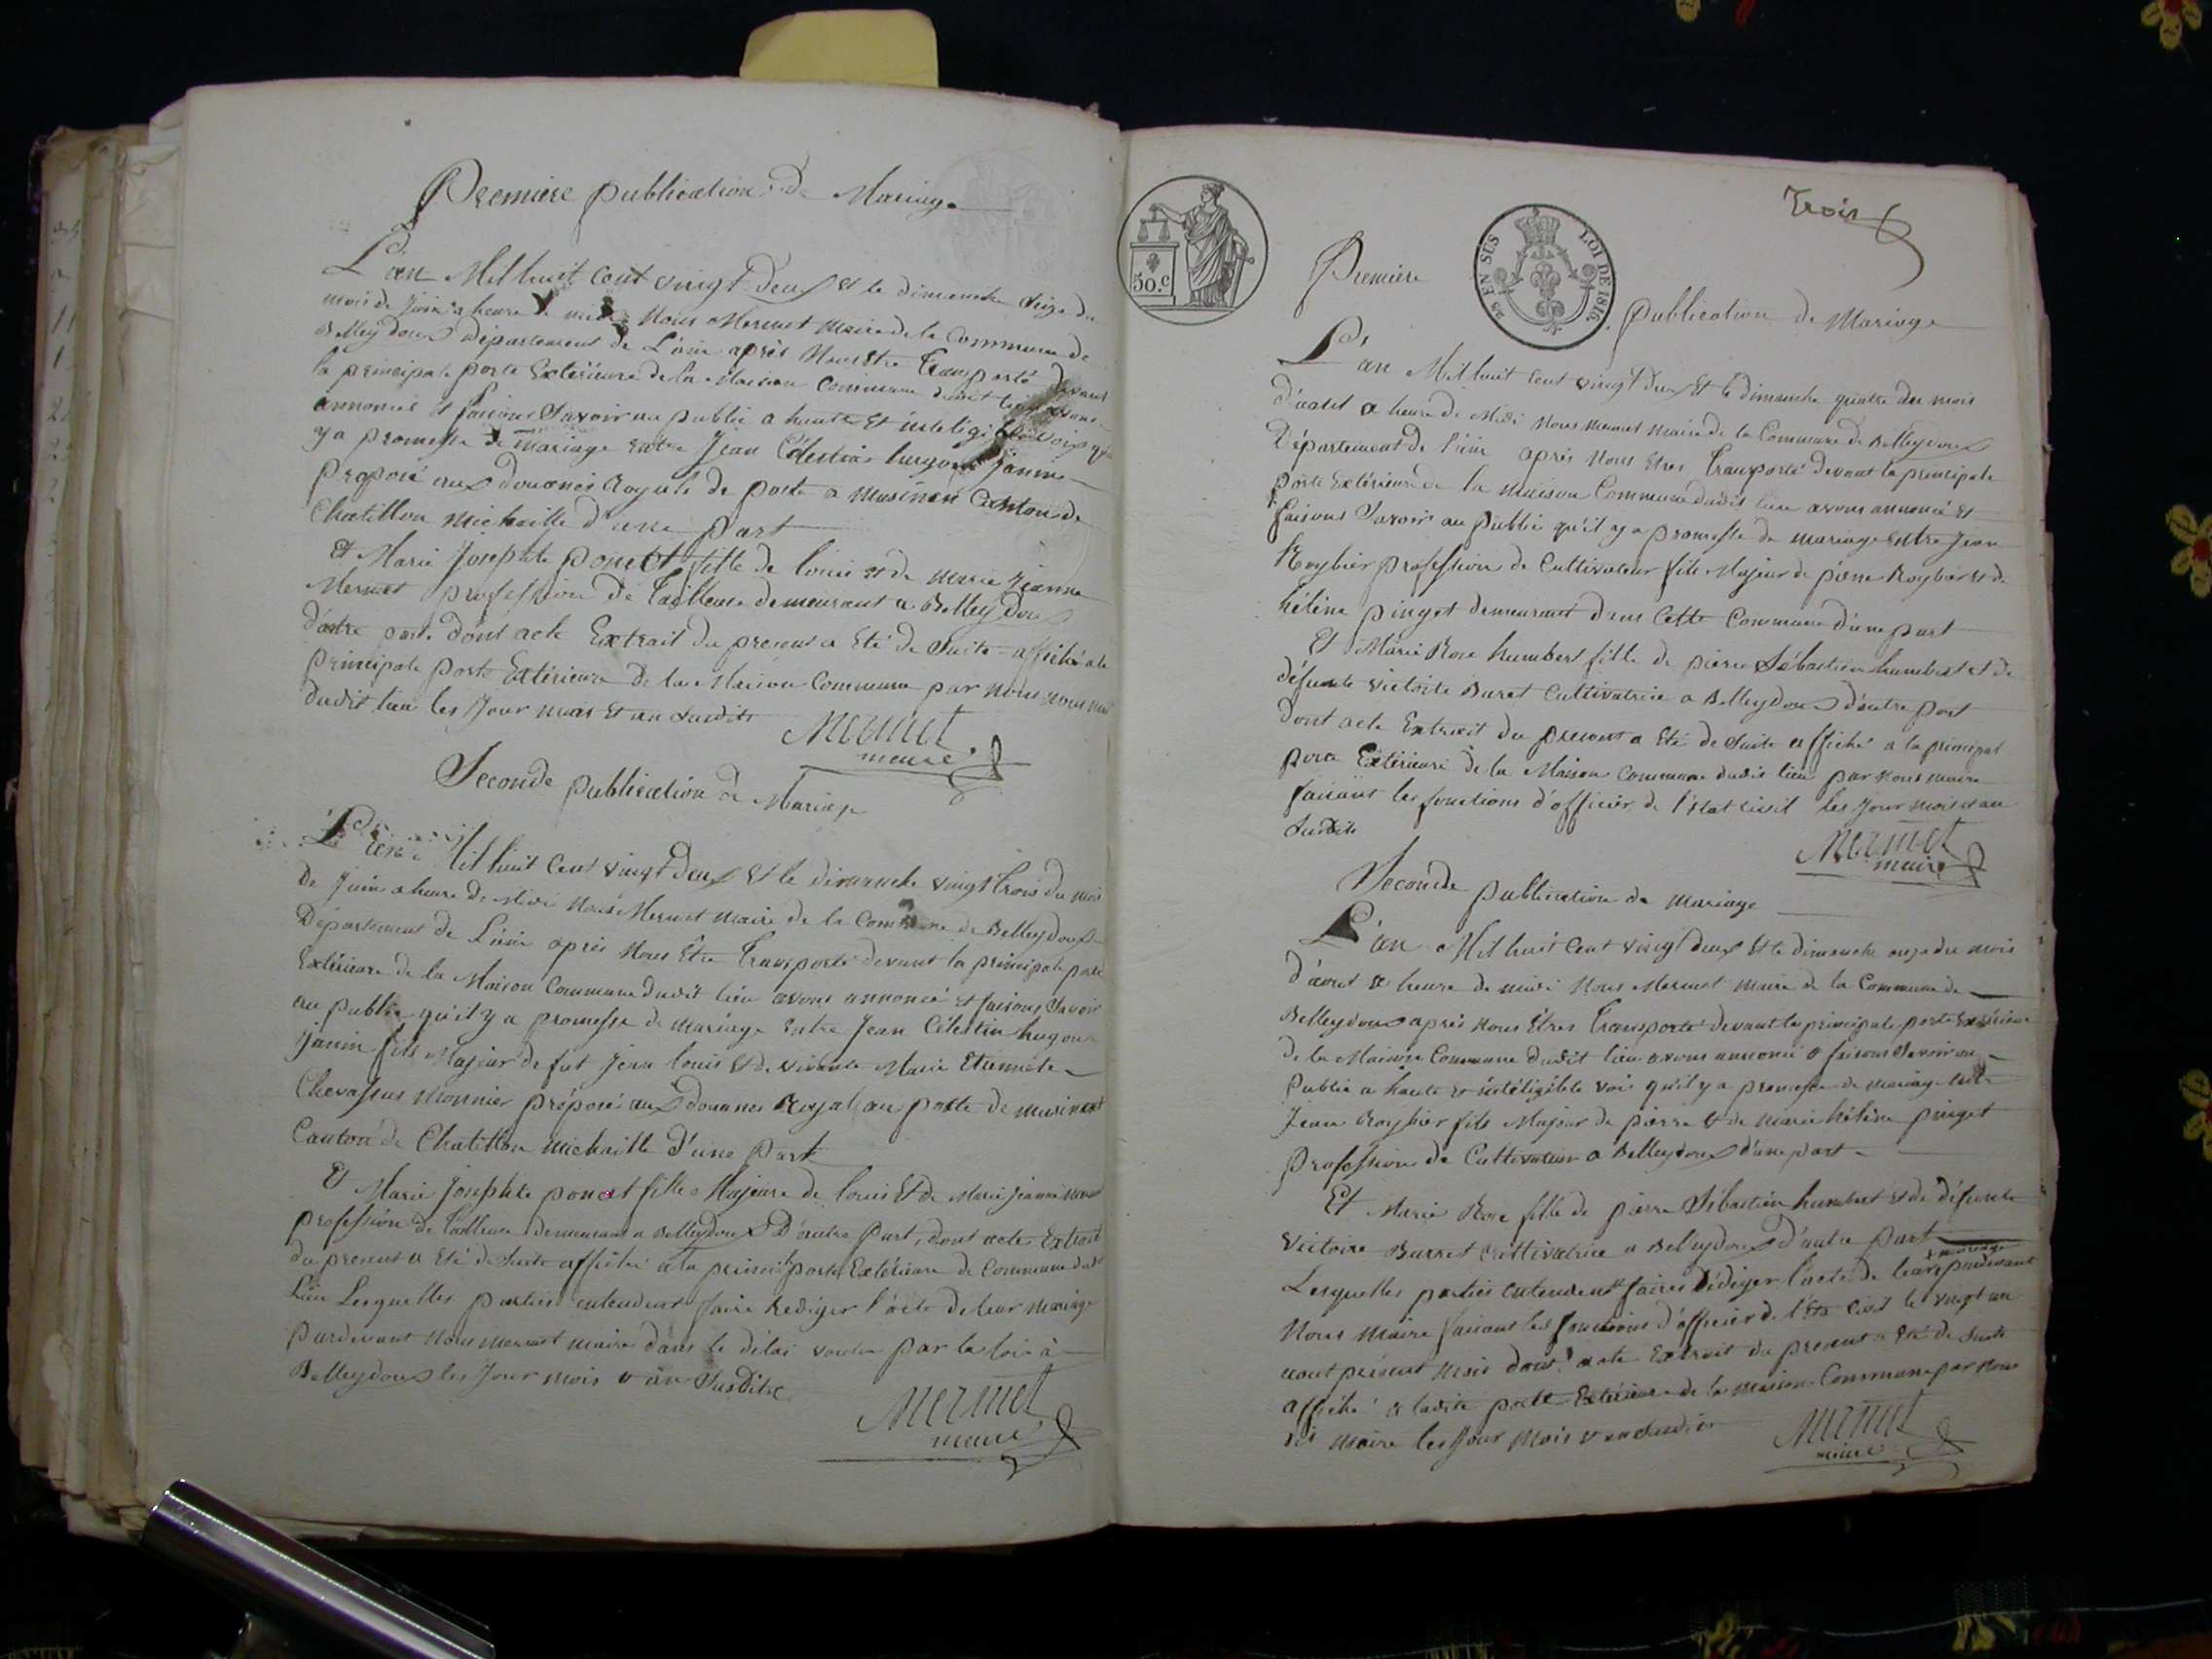 Premiere publication de Mariage
L'an Mil huit cent vingt deux et le dimanche seize du
mois de Juin a heure de midi Nous Mermet Maire de la Commune de
Belleydoux Département de L'ain après Nous Etre Transporté devant
la principale porte Extérieure de la Maison Commune dudit lieu avons
annoncé et faisons Savoir au public a haute Et inteligible voix qu'il
y a promesse de mariage entre Jean Célestin hugon Janin
Préposé aux douanes Royale de poste a musinens Canton de
Chatillon michaille d'une part
Et Marie Josephte poncet fille de louis et de marie Jeanne
Mermet profession de Tailleuse demeurant a Belleydoux
d'autre part. dont acte Extrait du present a Eté de Suite affiché a la
principale porte Extérieure de la Maison Commune par nous
dudit lieu les Jour mois Et an Susdits
Mermet
maire
Seconde publication de Mariage
L'an Mil huit Cent vingt deux Et le dimanche vingt trois du mois
de Juin a heure de Midi Nous Mermet maire de la Commune de Belleydoux
Département de L'ain après Nous Etre Transporté devant la principale porte
Extérieure de la Maison Commune dudit lieu avons annoncé Et faisons Savoir
au public qu'il y a promesse de mariage Entre Jean Célestin hugon
Janin fils Majeur de fut Jean louis Et de vivante Marie Etiennete
Chevassus Monnier préposé aux douanes Royal au poste de musinens
Canton de Chatillon michaille d'une Part
Et Marie Josephte poncet fille Majeure de louis Et de Marie Jeanne Mermet
profession de Tailleuse demeurant a Belleydoux D'autre Part, dont acte Extrait
du present a Eté de Suite affiché a la principale porte Extérieure de Commune dudit
Lieu Lesquelles parties entendent faire Rediger l'acte de leur mariage
pardevant Nous mermet maire dans le délai voulu par la loi à
Belleydoux les Jour mois et an Susdits
Mermet
maire
Trois
50.c
25 EN SUS
LOI DE 1816.
Premiere
publication de Mariage
L'an Mil huit cent vingt deux Et le dimanche quatre du mois
d'aout a heure de Midi Nous mermet maire de la Commune de Belleydoux
Département de l'ain après Nous Etres Transporté devant la principale
porte Extérieure de la maison Commune dudit lieu avons annoncé Et
faisons Savoir au public qu'il y a promesse de mariage Entre Jean
Roybier profession de Cultivateur fils Majeur de pierre Roybier et de
hélène pinget demeurant dans Cette Commune d'une part
Et Marie Rose humbert fille de pierre Sébastien humbert et de
défunte victoire Buret Cultivatrice a Belleydoux d'autre part
dont acte Extrait du present a Eté de Suite affiché a la principal
porte Extérieure de la Maison Commune dudit lieu par nous maire
faisant les fonctions d'officier de l'Etat civil les Jour mois et an
Susdits
Mermet
maire
Seconde publication de mariage
L'an Mil huit Cent vingt deux Et le dimanche onze du mois
d'aout a heure de midi Nous Mermet maire de la Commune de
Belleydoux après nous Etres Transporté devant la principale porte Extérieure
de la Maison Commune dudit lieu avons annoncé & faisons Savoir au
Public a haute et inteligible voix qu'il y a promesse de mariage entre
Jean Roybier fils Majeur de pierre & de marie hélène pinget
Profession de Cultivateur a Belleydoux d'une part
Et Marie Rose fille de pierre Sébastien humbert et de défunte
Victoire Burret Cultivatrice a Belleydoux d'autre Part
Lesquelles parties entendent faires Rédiger l'acte de leur mariage pardevant
Nous Maire faisant les fonctions d'officier de l'Etat Civil le vingt un
aout présent mois dont acte Extrait du present a Eté de Suite
affiché a ladite porte Extérieure de la maison Commune par nous
dit maire les Jour Mois & an Susdits
Mermet
maire